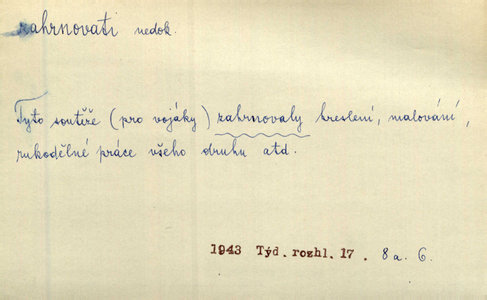 zahrnovati nedok.
Tyto soutěže (pro vojáky) zahrnovaly kreslení, malování,
rukodělné práce všeho druhu atd.
1943 Týd. rozhl. 17. 8 a. 6.